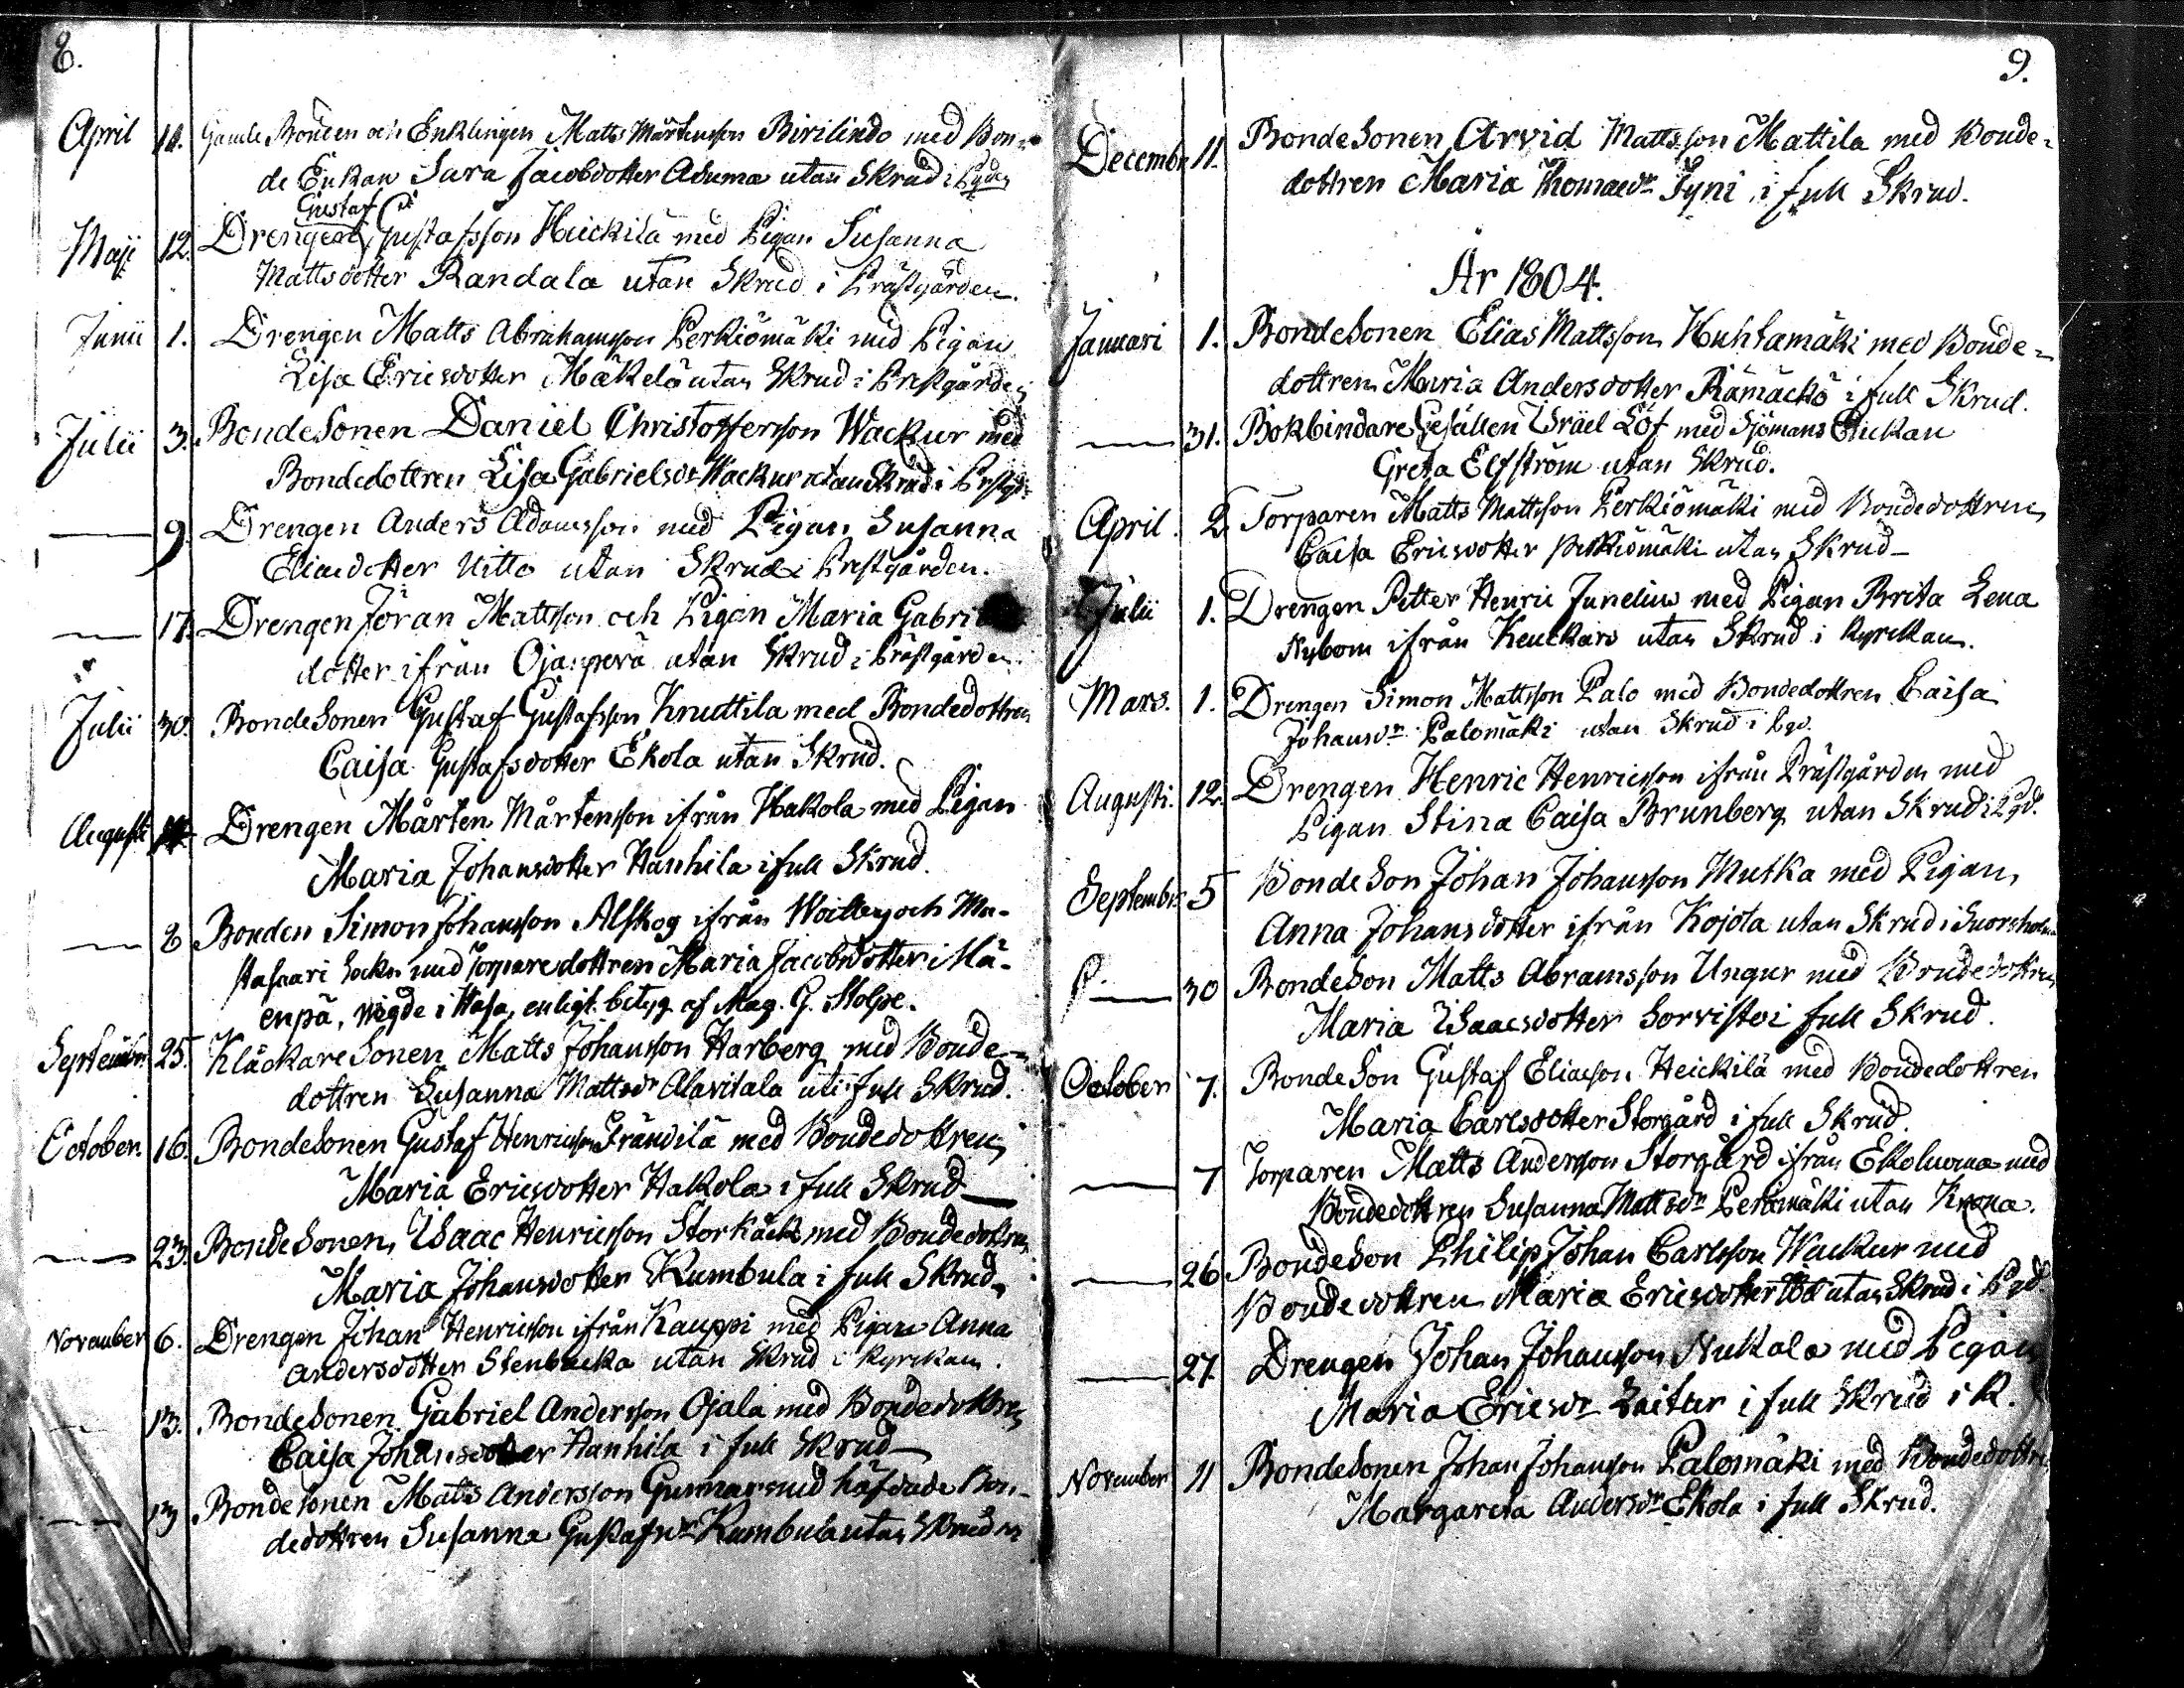 8.
April 11. Gamle Bonden och Enklingen Matts Mårtensson Birilindo med Bon-
de Enkan Sara Jacobsdotter Asuma utan Skrud i
Gustaf
Maji 12. Drengen Gustafsson Heickilä med Pigan Susanna
Mattsdotter Randala utan Skrud i Prästgården.
Junii 1. Drengen Matts Abrahamsson Perkiömäki med Pigan
Lisa Ericsdotter Mäkelä utan Skrud i Prestgården
Julii 3. BondeSonen Daniel Christoffersson Wackur med
Bondedottren Lisa Gabrielsdr Wackur utan Skrud i Prestgd
— 9. Drengen Anders Adamsson med Pigan Susanna
Eliaedotter Uitto utan Skrud i Prestgården.
— 17. Drengen Jöran Mattsson och Pigan Maria Gabri
dotter ifrån Ojanperä utan Skrud i Prästgården
Julii 30. BondeSonen Gustaf Gustafsson Knuttila med Bondedottren
Caisa Gustafsdotter Ekola utan Skrud.
Augusti Drengen Mårten Mårtensson ifrån Hakola med Pigan
Maria Johansdotter Hanhila i full Skrud.
— 8 Bonden Simon Johansson Alskog ifrån Woitby och Mu-
stasaari Sockn med Torparedottren Maria Jacobsdotter Mä-
enpä, wigde i Wasa, enligt betyg af Mag. G. Stolpe.
Septembr. 25. KlåckareSonen Matts Johansson Harberg med Bonde-
dottren Susanna Mattsdr Alavitala uti full Skrud.
October. 16. BondeSonen Gustaf Henricsson Frändilä med Bondedottren
Maria Ericsdotter Hakola i full Skrud —
— 23. BondeSonen Isaac Henricsson Storkäck med Bondedottren
Maria Johansdotter Kumbula i full Skrud
November 6. Drengen Johan Henricsson ifrån Kauppi med Pigan Anna
Andersdotter Stenbacka utan Skrud i Kyrckan.
— 13. BondeSonen Gabriel Andersson Ojala med Bondedottren
Caisa Johansdotter Hanhila i full Skrud —
— 13 BondeSonen Matts Andersson Gunnar med häfdade Bon-
dedottren Susanna Gustafsdr Kumbula utan Skrud
9.
Decembr 11. BondeSonen Arvid Mattsson Mattila med Bonde-
dottren Maria Thomaedr Fyni i full Skrud.
År 1804.
Januari 1. BondeSonen Elias Mattsson Huhtamäki med Bonde-
dottren Maria Andersdotter Rämäckö i full Skrud.
— 31. Bokbindare Gesällen Israel Löf med Sjömans Enckan
Greta Elfström utan Skrud.
April 2. Torparen Matts Mattsson Perkiömäki med Bondedottren
Caisa Ericsdotter Perkiömäki utan Skrud —
Julii 1. Drengen Petter Henric Junelius med Pigan Brita Lena
Nybom ifrån Keuckars utan Skrud i Kyrckan.
Mars. 1. Drengen Simon Mattsson Palo med Bondedottren Caisa
Johansdr Palomäki utan Skrud i Pgd.
Augusti. 12. Drengen Henric Henricsson ifrån Prästgården med
Pigan Stina Caisa Brunberg utan Skrud i Pgd.
Septembr. 5 BondeSon Johan Johansson Mutka med Pigan
Anna Johansdotter ifrån Kojola utan Skrud i
— 30 BondeSon Matts Abramsson Ungur med Bondedottren
Maria Isaacsdotter Sorvisto i full Skrud.
October 7. BondeSon Gustaf Eliaeson Heickilä med Bondedottren
Maria Carlsdotter Storgård i full Skrud.
— 7 Torparen Matts Andersson Storgård ifrån Ekoluoma med
Bondedottren Susanna Mattsdr Perkiömäki utan Krona.
— 26 BondeSon Philip Johan Carlsson Wackur med
Bondedottren Maria Ericsdotter utan Skrud i Pgd
— 27. Drengen Johan Johansson Nukala med Pigan
Maria Ericsdr Laitur i full Skrud i K.
November 11 BondeSonen Johan Johansson Palomäki med Bondedottren
Margareta Andersdr Ekola i full Skrud.